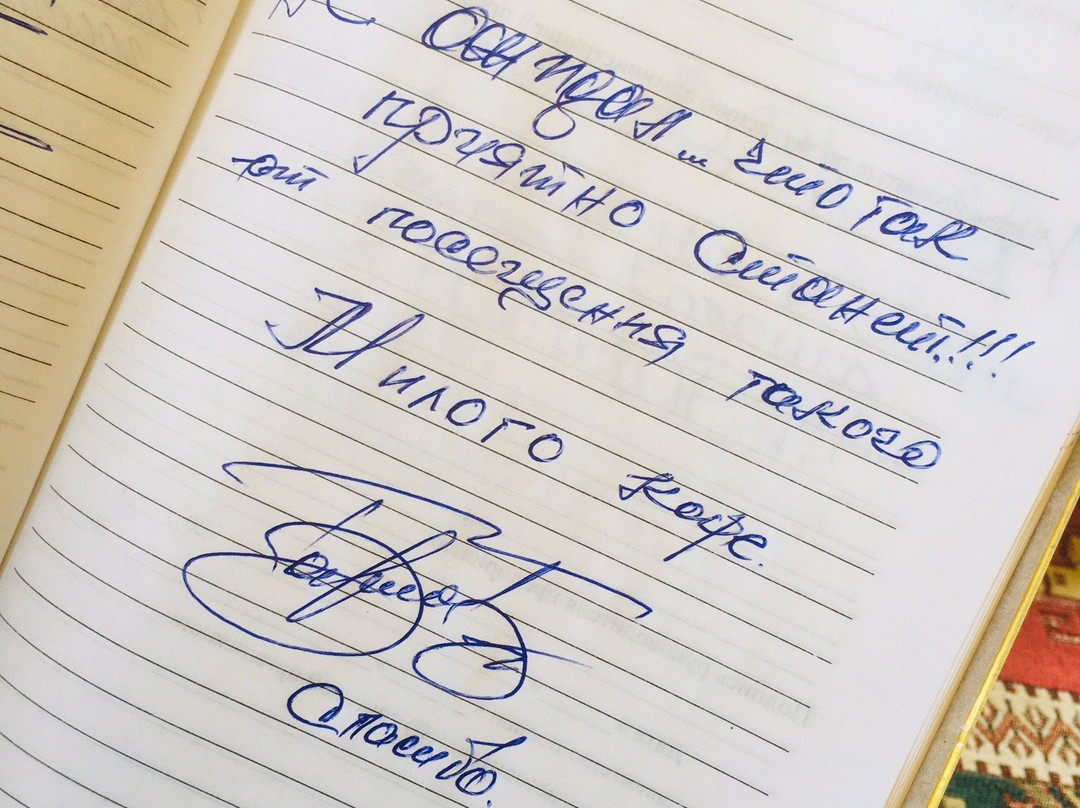 Не ожидал... что так
приятно станет!!!
от посещения такого
Милого кафе.
Спасибо.